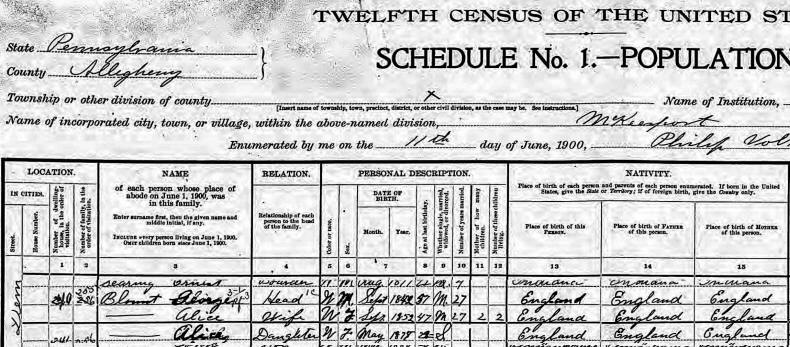 TWELFTH CENSUS OF THE UNITED ST
State Pennsylvania
County Allegheny
SCHEDULE No. 1.—POPULATION
Township or other division of county X Name of Institution,
[Insert name of township, town, precinct, district, or other civil division, as the case may be. See instructions.]
Name of incorporated city, town, or village, within the above-named division, McKeesport
Enumerated by me on the 11th day of June, 1900, Philip Vol
LOCATION. NAME RELATION. PERSONAL DESCRIPTION. NATIVITY.
IN CITIES.
Street.
House Number.
Number of dwelling-house, in the order of visitation.
Number of family, in the order of visitation.
of each person whose place of abode on June 1, 1900, was in this family.
Enter surname first, then the given name and middle initial, if any.
INCLUDE every person living on June 1, 1900.
OMIT children born since June 1, 1900.
Relationship of each person to the head of the family.
Color or race.
Sex.
DATE OF BIRTH.
Month. Year.
Age at last birthday.
Whether single, married, widowed, or divorced.
Number of years married.
Mother of how many children.
Number of these children living.
Place of birth of each person and parents of each person enumerated. If born in the United States, give the State or Territory; if of foreign birth, give the Country only.
Place of birth of this PERSON.
Place of birth of FATHER of this person.
Place of birth of MOTHER of this person.
1 2 3 4 5 6 7 8 9 10 11 12 13 14 15
Indiana Indiana Indiana
Blount George Head W M Sept M 27 England England England
Alice Wife W F 47 M 27 2 2 England England England
Alice Daughter W F May 1878 S England England England